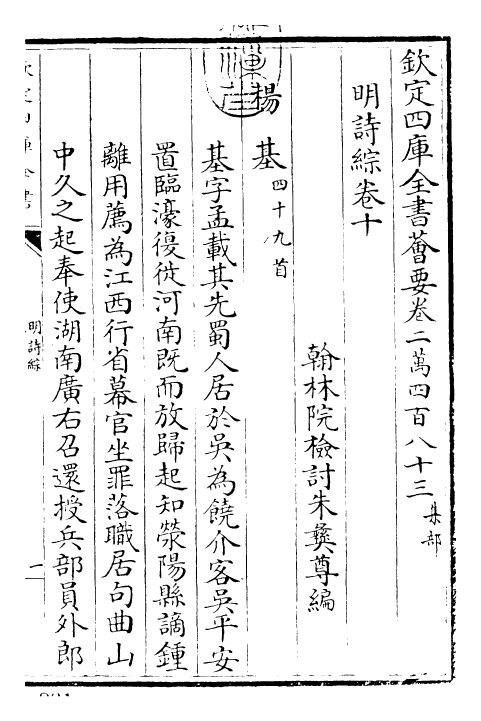 欽定四庫全書薈要卷二萬四百八十三 集部
明詩綜卷十
翰林院檢討朱彝尊編
楊基 四十九首
基字孟載其先蜀人居於吳為饒介客吳平安
置臨濠復徙河南既而放歸起知滎陽縣謫鍾
離用薦為江西行省幕官坐罪落職居句曲山
中久之起奉使湖南廣右召還授兵部員外郎
欽定四庫全書
明詩綜